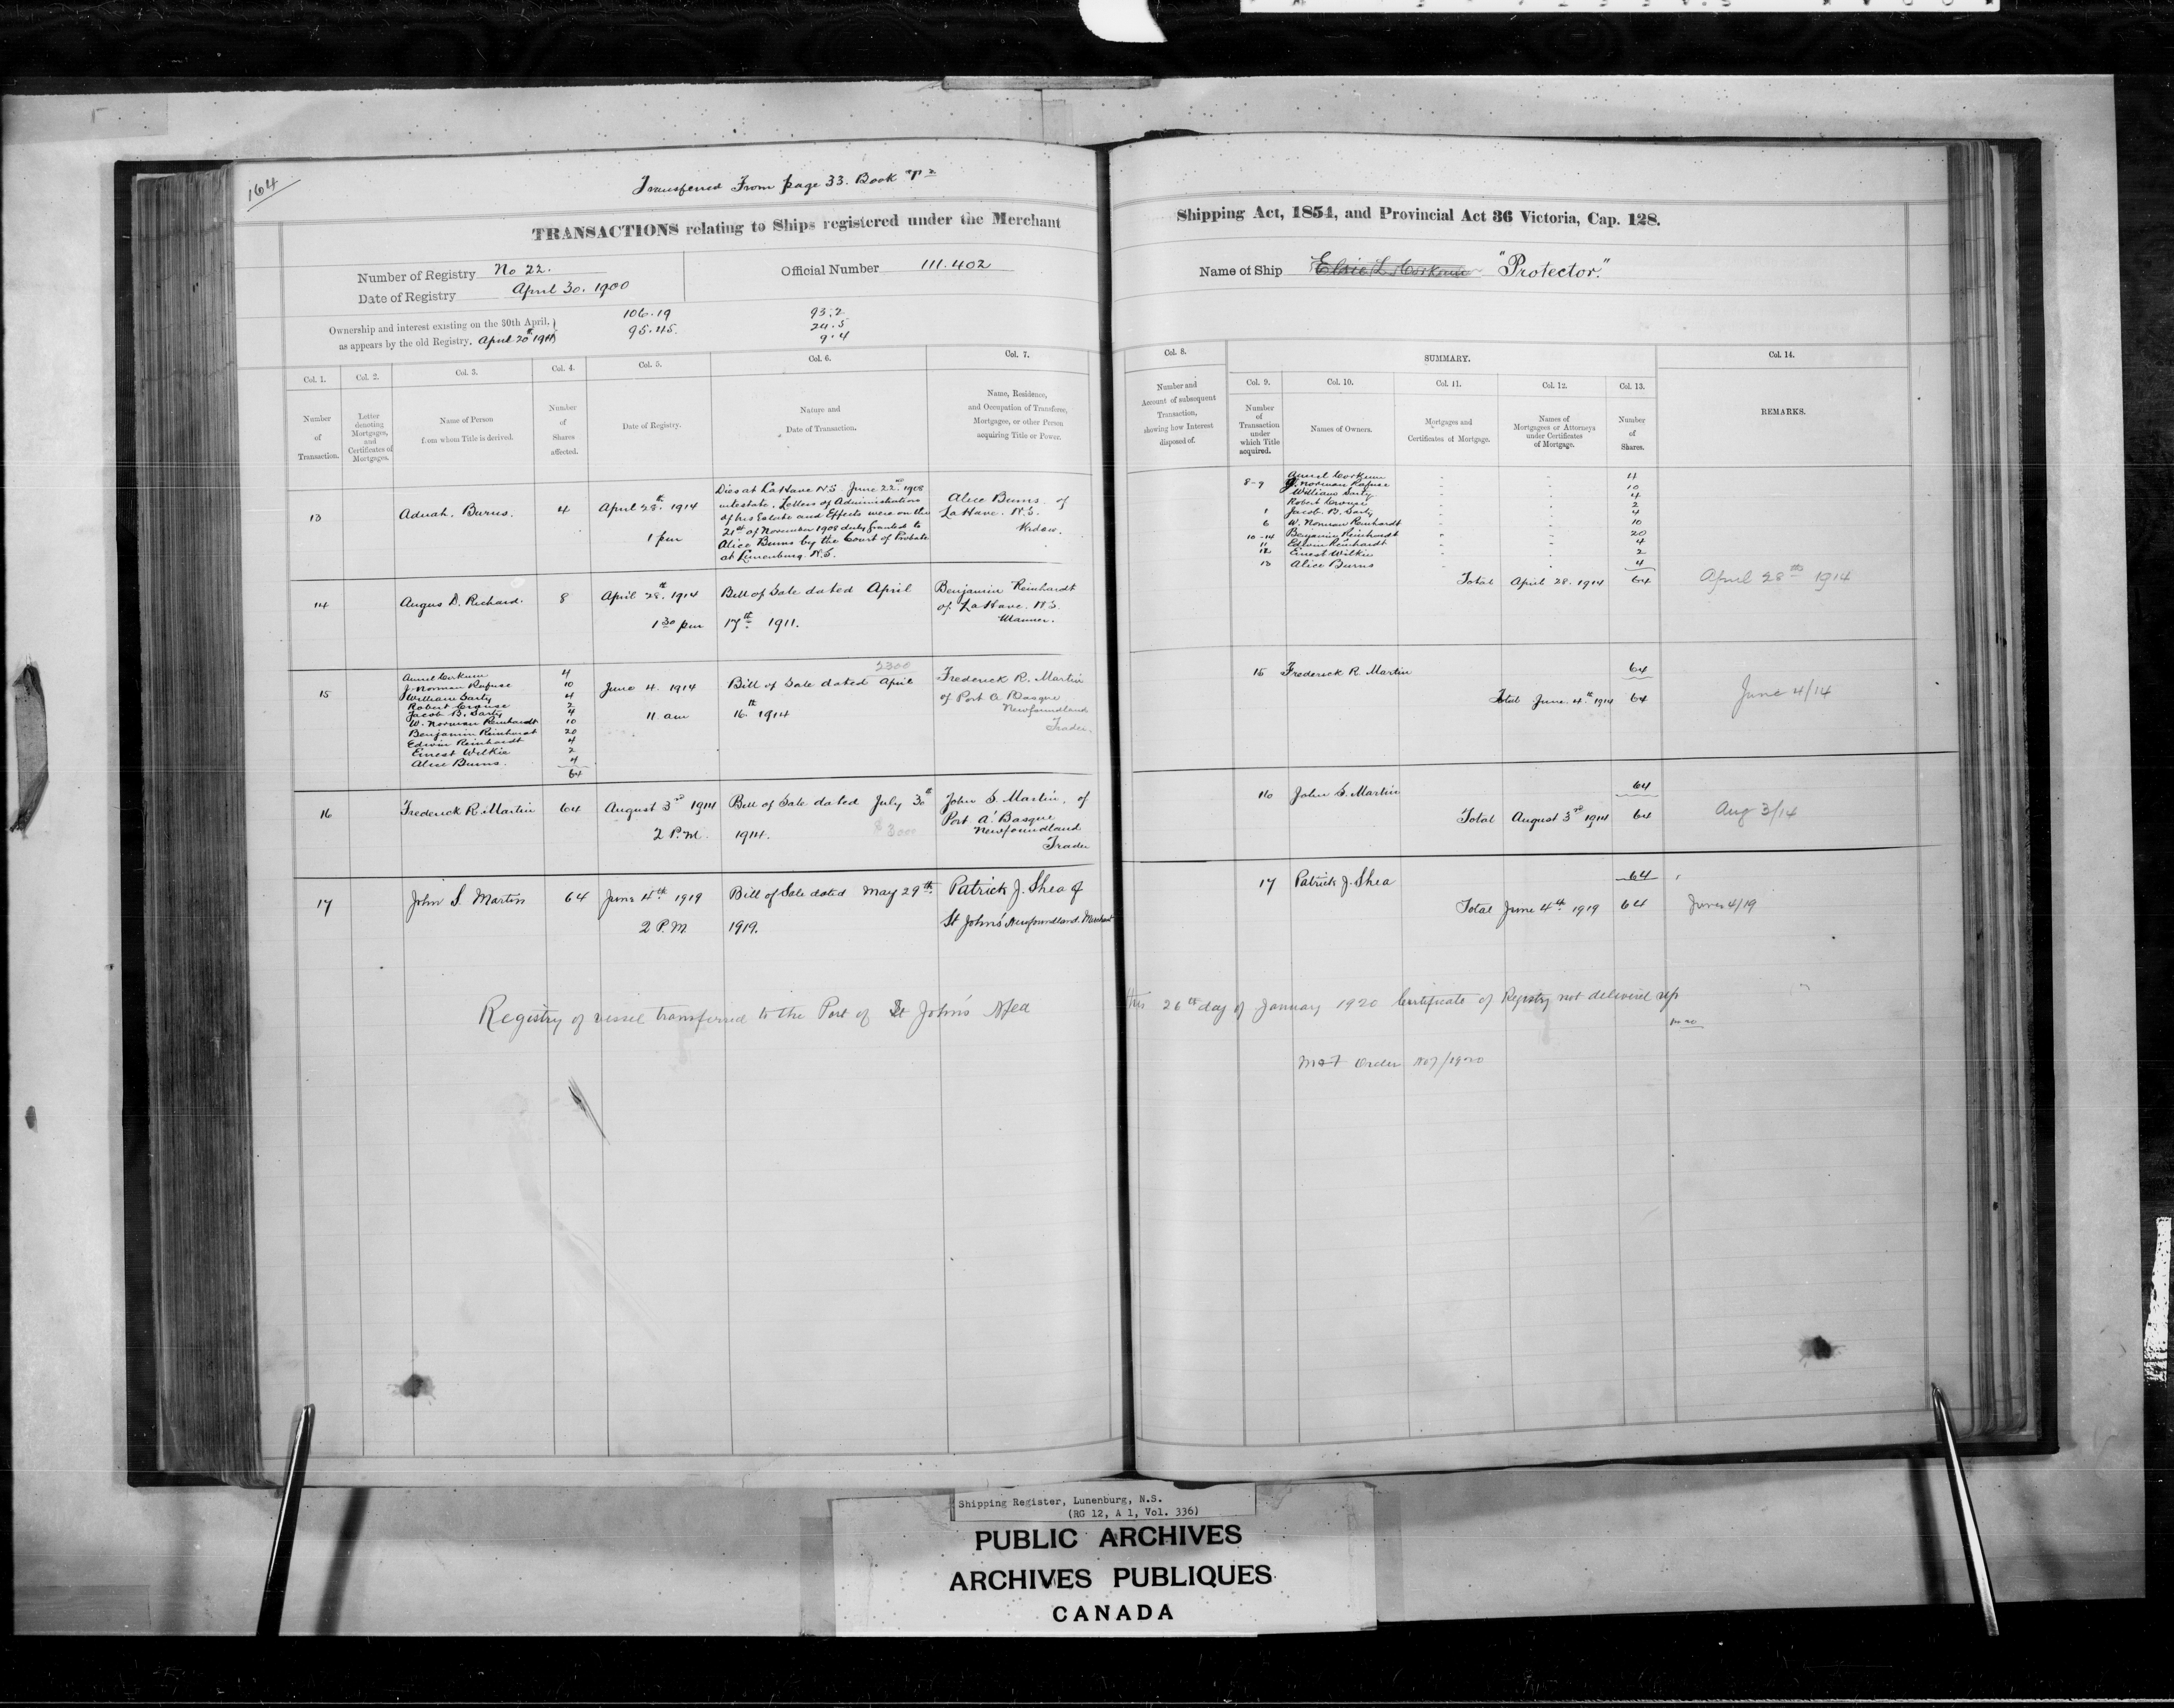 164
Transferred From page 33. Book "P"
TRANSACTIONS relating to Ships registered under the Merchant
Number of Registry No 22.
Official Number 111.402
Date of Registry April 30. 1900
Ownership and interest existing on the 30th April,
as appears by the old Registry.
106.19
95.45.
93.2
24.5
9.4
Col. 1.
Col. 2.
Col. 3.
Col. 4.
Col. 5.
Col. 6.
Col. 7.
Number
of
Transaction.
Letter
denoting
Mortgages,
and
Certificates of
Mortgages.
Name of Person
from whom Title is derived.
Number
of
Shares
affected.
Date of Registry.
Nature and
Date of Transaction.
Name, Residence,
and Occupation of Transferee,
Mortgagee, or other Person
acquiring Title or Power.
13
Adnah. Burns.
4
April 28th. 1914
1 pm
Dies at LaHave N.S June 22nd. 1908
intestate. Letters of Administration
of his Estate and Effects were on the
21st of November 1908 duly granted to
Alice Burns by the Court of Probate
at Lunenburg. N.S.
Alice Burns of
LaHave. N.S.
Widow.
14
Angus D. Richard.
8
April 28th. 1914
1 30 pm
Bill of Sale dated April
17th 1911.
Benjamin Reinhardt
of LaHave. N.S.
Mariner.
15
Aurel Corkum 4
J. Norman Rafuse 10
William Sarty 4
Robert Crouse 2
Jacob B. Sarty 4
W. Norman Reinhardt 10
Benjamin Reinhardt 20
Edwin Reinhardt 4
Ernest Wilkie 2
Alice Burns. 4
64
June 4. 1914
11 am
2300
Bill of Sale dated April
16th 1914
Frederick R. Martin
of Port a Basque
Newfoundland
Trader.
16
Frederick R. Martin
64
August 3rd 1914
2 P.M.
Bill of Sale dated July 30th
1914. $3000
John S. Martin. of
Port a' Basque
Newfoundland
Trader
17
John S. Martin
64
June 4th 1919
2 P.M
Bill of Sale dated May 29th.
1919.
Patrick J. Shea of
St John's Newfoundland. Merchant
Registry of vessel transferred to the Port of St John's Nfld
Shipping Act, 1854, and Provincial Act 36 Victoria, Cap. 128.
Name of Ship Elsie L. Corkum "Protector."
Col. 8.
SUMMARY.
Col. 14.
Col. 9.
Col. 10.
Col. 11.
Col. 12.
Col. 13.
Number and
Account of subsequent
Transaction,
showing how Interest
disposed of.
Number
of
Transaction
under
which Title
acquired.
Names of Owners.
Mortgages and
Certificates of Mortgage.
Names of
Mortgagees or Attorneys
under Certificates
of Mortgage.
Number
of
Shares.
REMARKS.
Aurel Corkum 4
8-9 J. Norman Rafuse 10
William Sarty 4
Robert Crouse 2
1 Jacob B. Sarty 4
6 W. Norman Reinhardt 10
10-14 Benjamin Reinhardt 20
11 Edwin Reinhardt 4
12 Ernest Wilkie 2
13 Alice Burns 4
Total April 28. 1914 64
April 28th 1914
15 Frederick R. Martin 64
Total June. 4th 1914 64
June 4/14
16 John S. Martin 64
Total August 3rd 1914 64
Aug 3/14
17 Patrick J. Shea 64
Total June 4th 1919 64
June 4/19
this 26th day of January 1920 Certificate of Registry not delivered up
Order
Shipping Register, Lunenburg, N.S.
(RG 12, A 1, Vol. 336)
PUBLIC ARCHIVES
ARCHIVES PUBLIQUES
CANADA